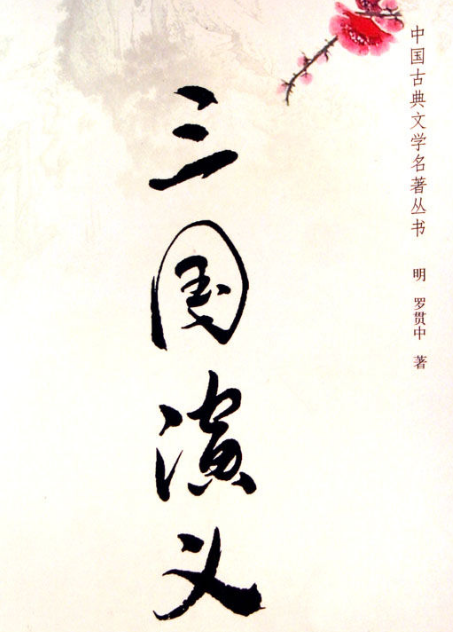 三国演义
中国古典文学名著丛书
明 罗贯中 著